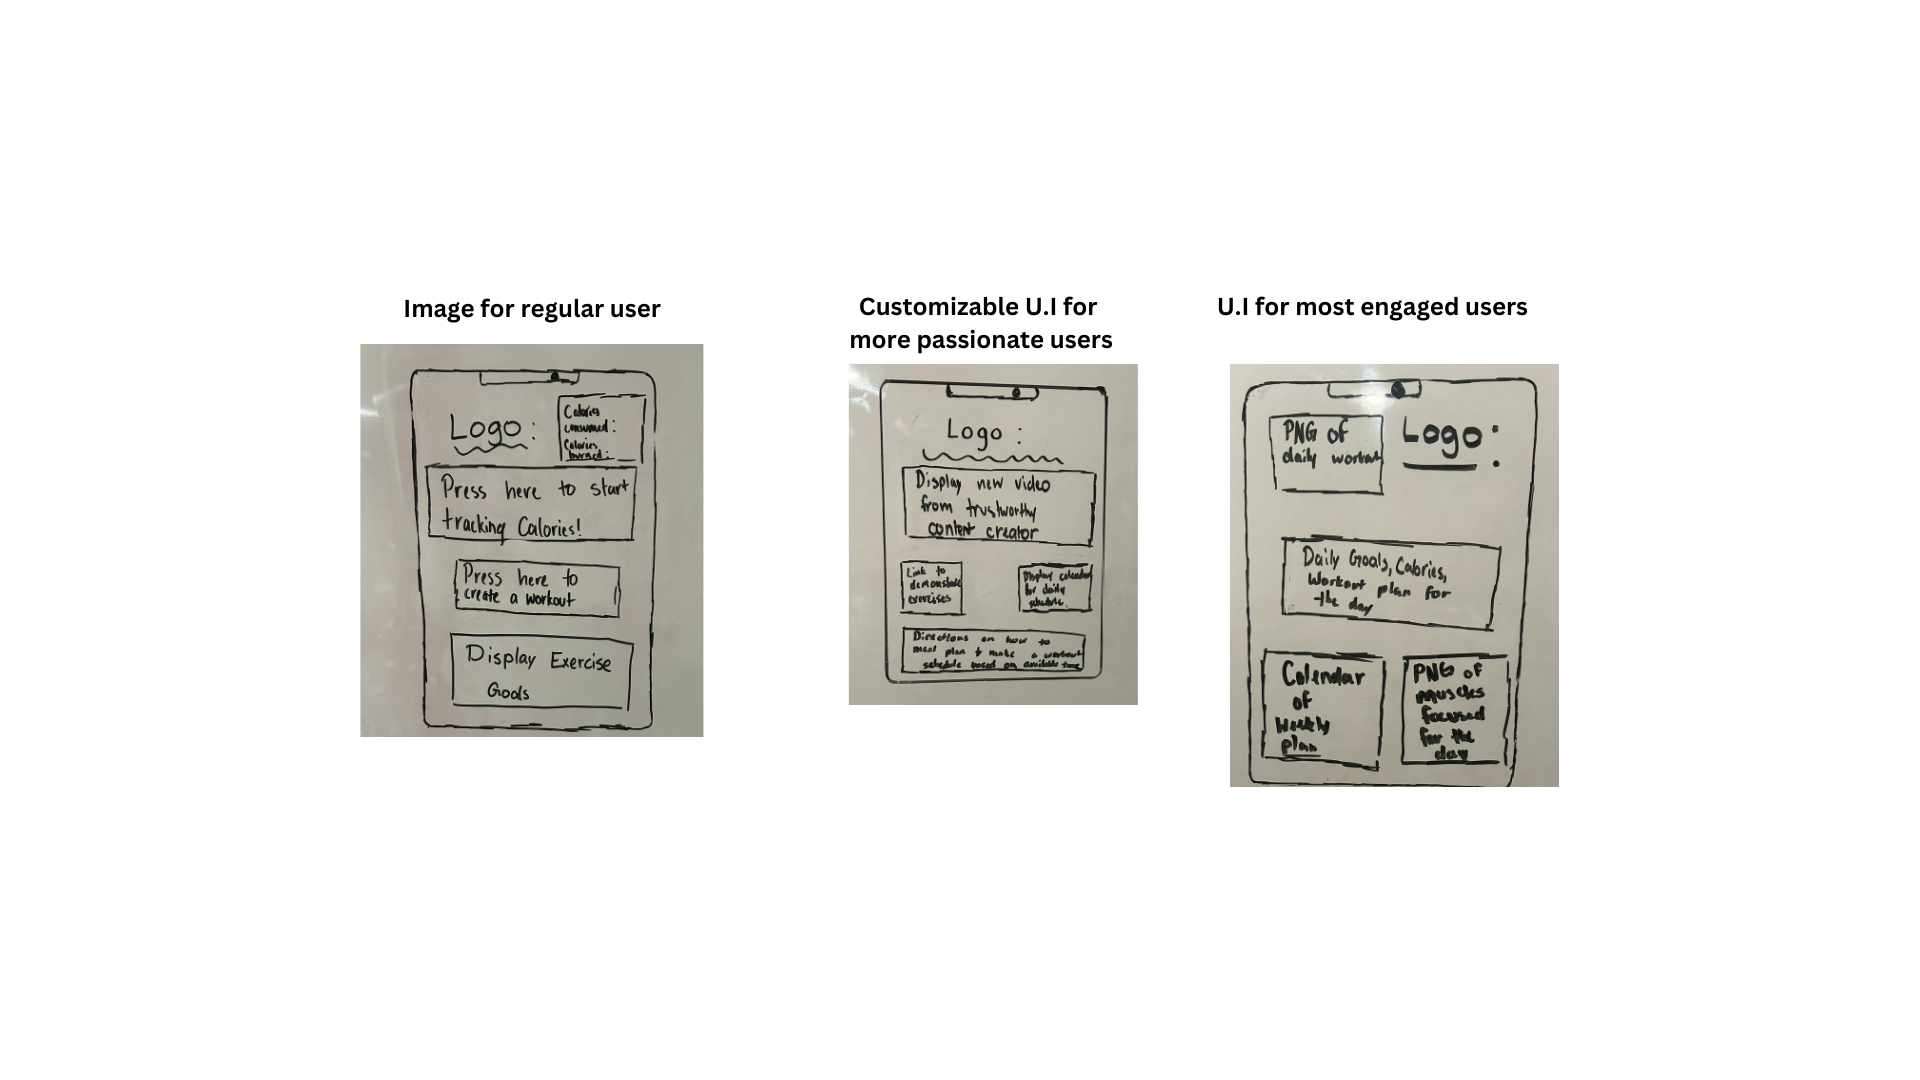 Image for regular user
Logo :
Calories
consumed :
Calories
burned :
Press here to start
tracking Calories!
Press here to
create a workout
Display Exercise
Goals
Customizable U.I for
more passionate users
Logo :
Display new video
from trustworthy
content creator
Link to
demonstrate
exercises
Display calendar
for daily
schedule
Directions on how to
meal plan & make a workout
schedule based on available time
U.I for most engaged users
PNG of
daily workout
Logo :
Daily Goals, Calories,
Workout plan for
the day
Calendar
of
Weekly
plan
PNG of
muscles
focused
for the
day